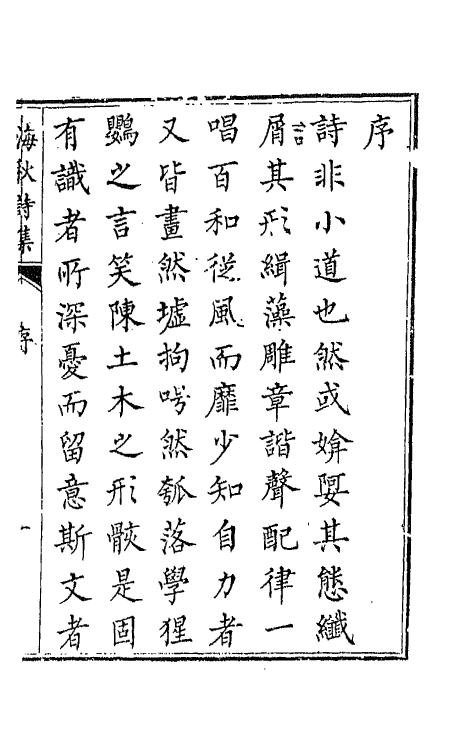 序
詩非小道也然或媕娿其態纖
屑其形緝藻雕章諧聲配律一
唱百和從風而靡少知自力者
又皆畫然墟拘呺然瓠落學猩
鸚之言笑陳土木之形骸是固
有識者所深憂而留意斯文者
海秋詩集
序
一